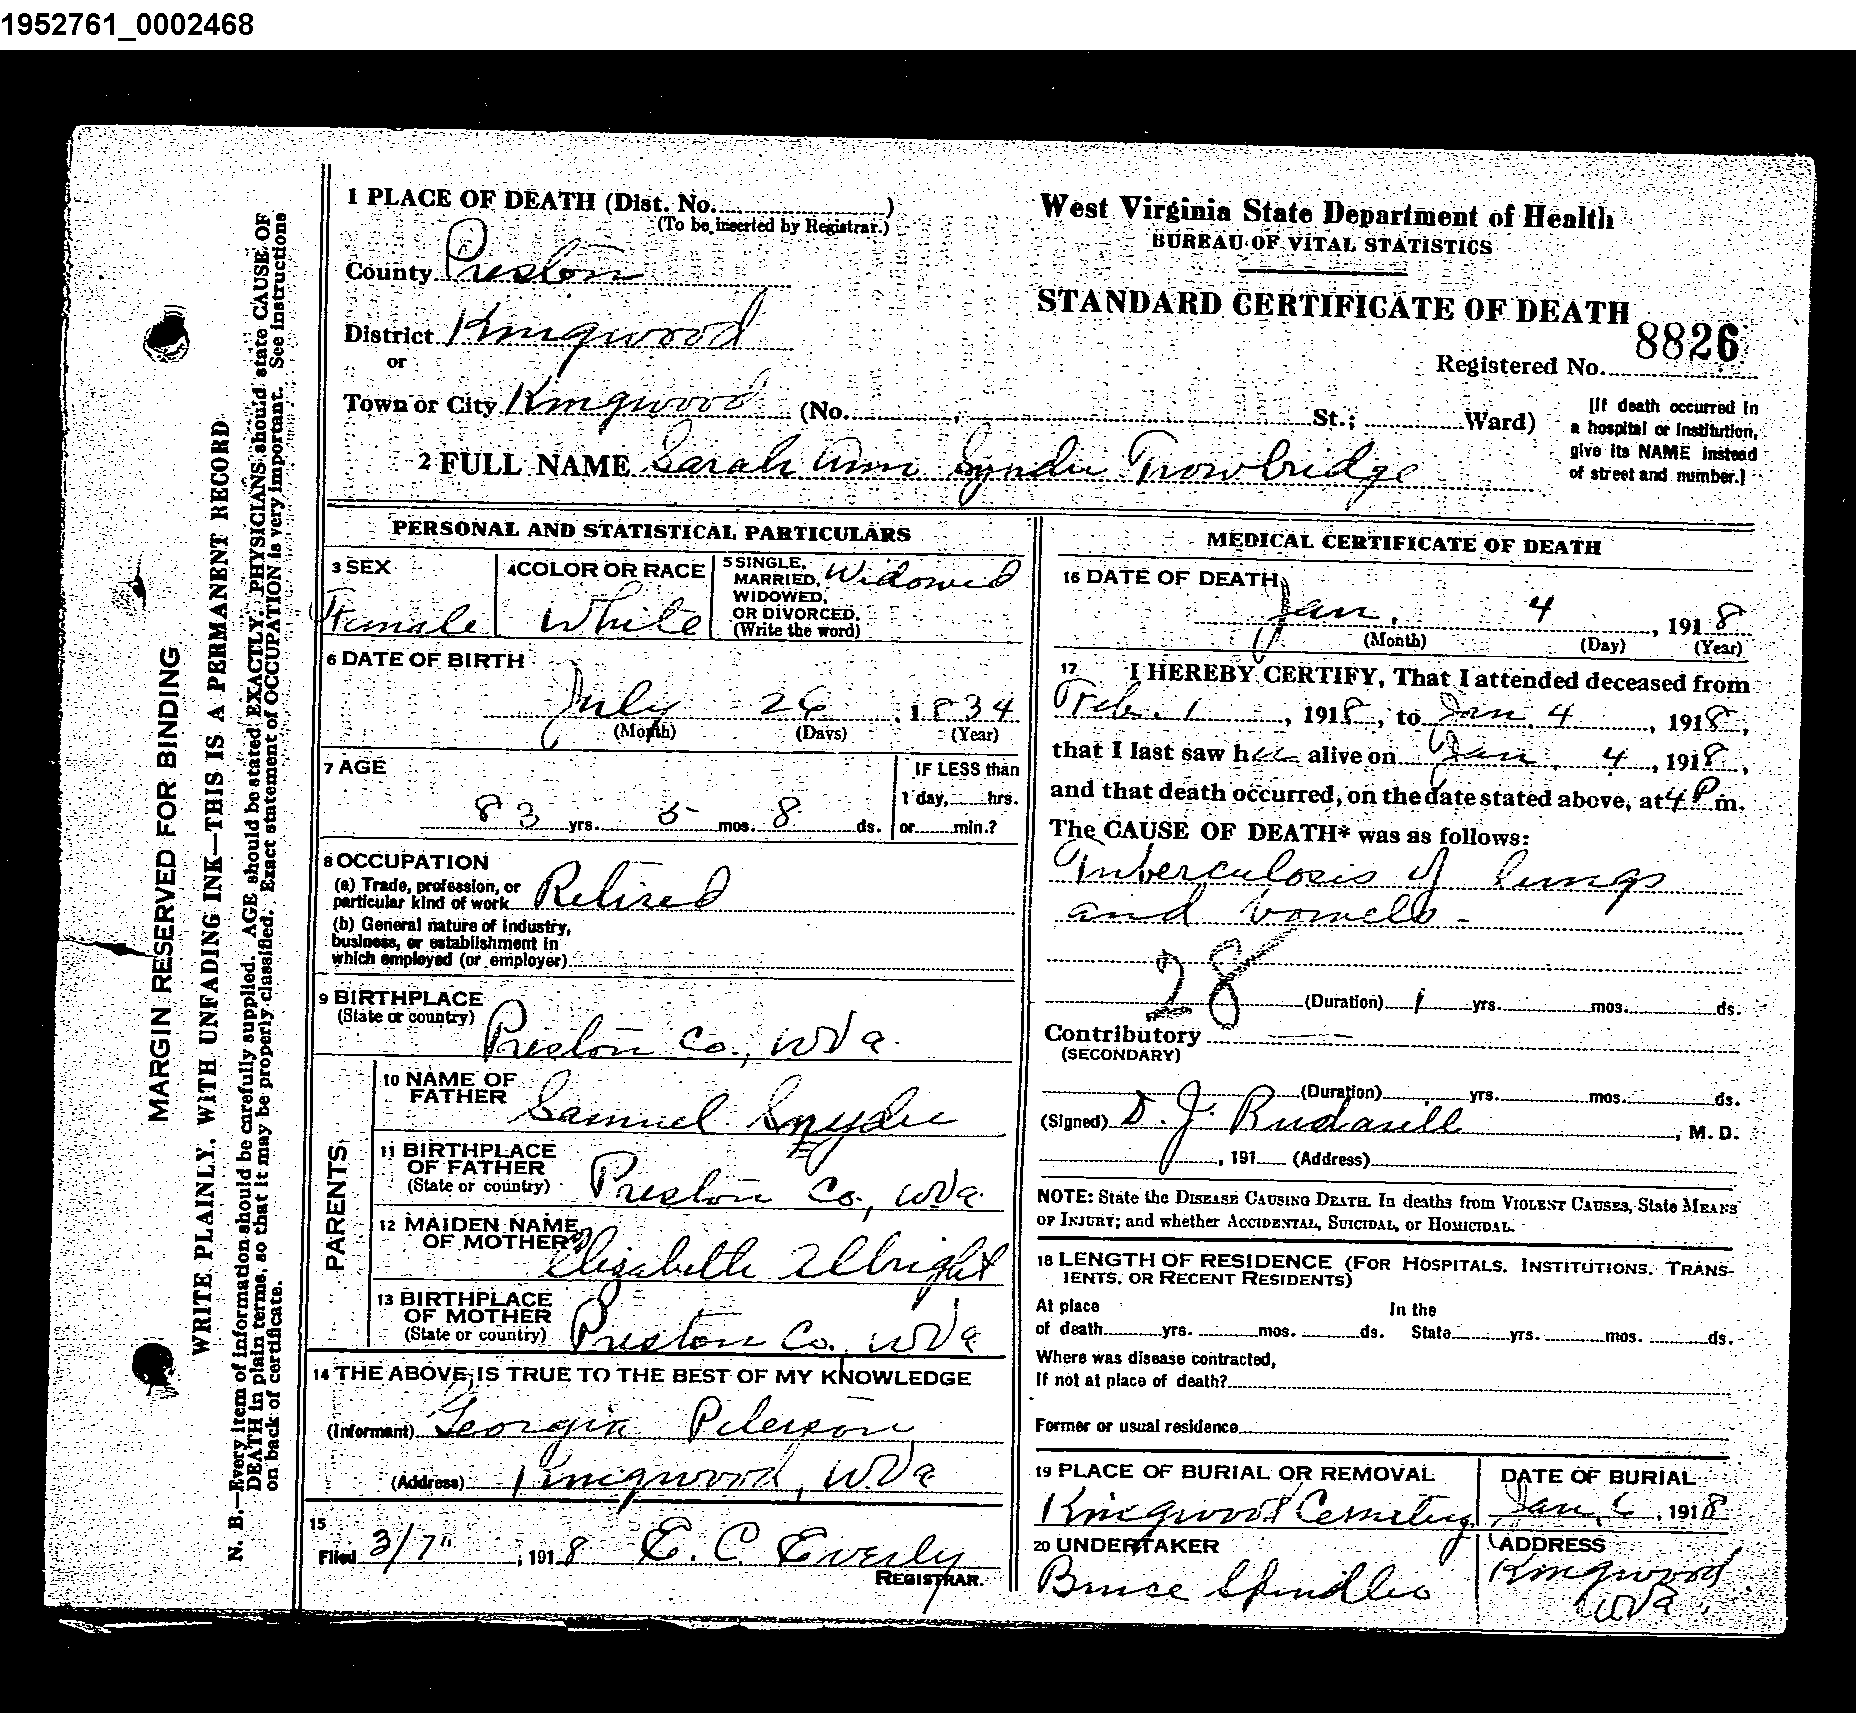 1952761_0002468
1 PLACE OF DEATH (Dist. No. )
(To be inserted by Registrar.)
County Preston
District Kingwood
or
Town or City Kingwood (No. , St.; Ward)
West Virginia State Department of Health
BUREAU OF VITAL STATISTICS
STANDARD CERTIFICATE OF DEATH
Registered No. 8826
[If death occurred in
a hospital or institution,
give its NAME instead
of street and number.]
2 FULL NAME Sarah Ann Synder Trowbridge
PERSONAL AND STATISTICAL PARTICULARS
3 SEX
Female
4 COLOR OR RACE
White
5 SINGLE,
MARRIED,
WIDOWED,
OR DIVORCED.
(Write the word)
Widowed
6 DATE OF BIRTH
July 26, 1834
(Month) (Days) (Year)
7 AGE
83 yrs. 5 mos. 8 ds.
IF LESS than
1 day, hrs.
or min.?
8 OCCUPATION
(a) Trade, profession, or
particular kind of work Retired
(b) General nature of industry,
business, or establishment in
which employed (or employer)
9 BIRTHPLACE
(State or country)
Preston Co., WVa.
PARENTS
10 NAME OF
FATHER Samuel Snyder
11 BIRTHPLACE
OF FATHER
(State or country) Preston Co., WVa.
12 MAIDEN NAME
OF MOTHER Elizabeth Albright
13 BIRTHPLACE
OF MOTHER
(State or country) Preston Co., WVa
14 THE ABOVE IS TRUE TO THE BEST OF MY KNOWLEDGE
(Informant) Georgia Peterson
(Address) Kingwood, WVa
15
Filed 3/7", 1918 E. C. Everly
REGISTRAR.
MEDICAL CERTIFICATE OF DEATH
16 DATE OF DEATH
Jan. 4, 1918
(Month) (Day) (Year)
17 I HEREBY CERTIFY, That I attended deceased from
Feb. 1, 1918, to Jan. 4, 1918,
that I last saw her alive on Jan. 4, 1918,
and that death occurred, on the date stated above, at 4 P m.
The CAUSE OF DEATH* was as follows:
Tuberculosis of lungs
and bowels.
28
(Duration) 1 yrs. mos. ds.
Contributory
(SECONDARY)
(Duration) yrs. mos. ds.
(Signed) D. J. Rudasill, M. D.
, 191 (Address)
NOTE: State the DISEASE CAUSING DEATH. In deaths from VIOLENT CAUSES, State MEANS
OF INJURY; and whether ACCIDENTAL, SUICIDAL, or HOMICIDAL.
18 LENGTH OF RESIDENCE (FOR HOSPITALS, INSTITUTIONS, TRANS-
IENTS, OR RECENT RESIDENTS)
At place In the
of death yrs. mos. ds. State yrs. mos. ds.
Where was disease contracted,
If not at place of death?
Former or usual residence
19 PLACE OF BURIAL OR REMOVAL
Kingwood Cemetery
DATE OF BURIAL
Jan. 6, 1918
20 UNDERTAKER
Bruce Spindler
ADDRESS
Kingwood
WVa.
MARGIN RESERVED FOR BINDING
WRITE PLAINLY, WITH UNFADING INK—THIS IS A PERMANENT RECORD
N. B.—Every item of information should be carefully supplied. AGE should be stated EXACTLY. PHYSICIANS should state CAUSE OF
DEATH in plain terms, so that it may be properly classified. Exact statement of OCCUPATION is very important. See instructions
on back of certificate.